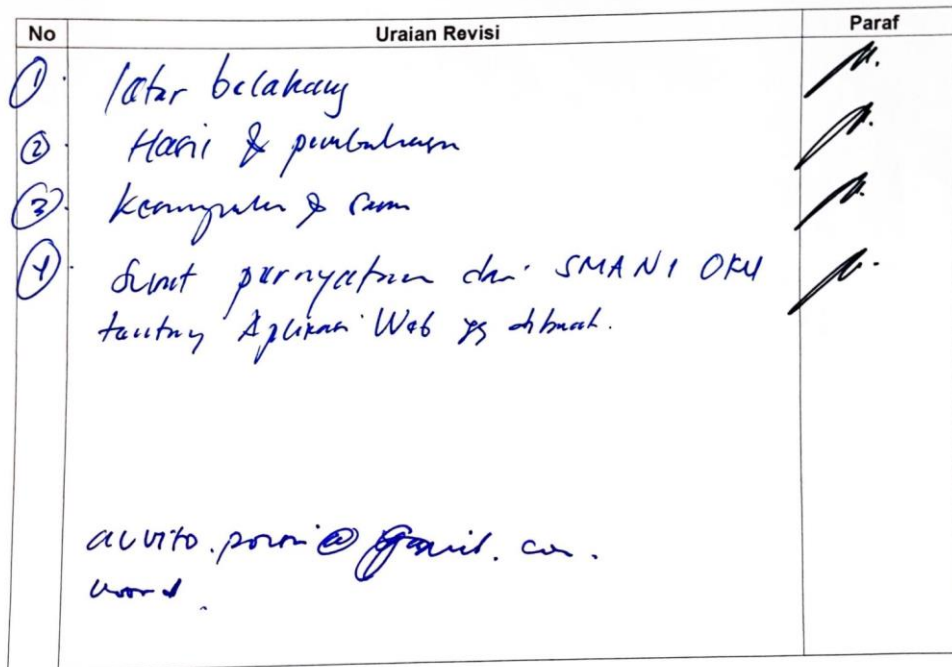 No Uraian Revisi Paraf
1. latar belakang
2. Hasil & pembahasan
3. kesimpulan & saran
4. Surat pernyataan dari SMAN 1 OKU
tentang Aplikasi Web yg dibuat.
@gmail.com.
word.